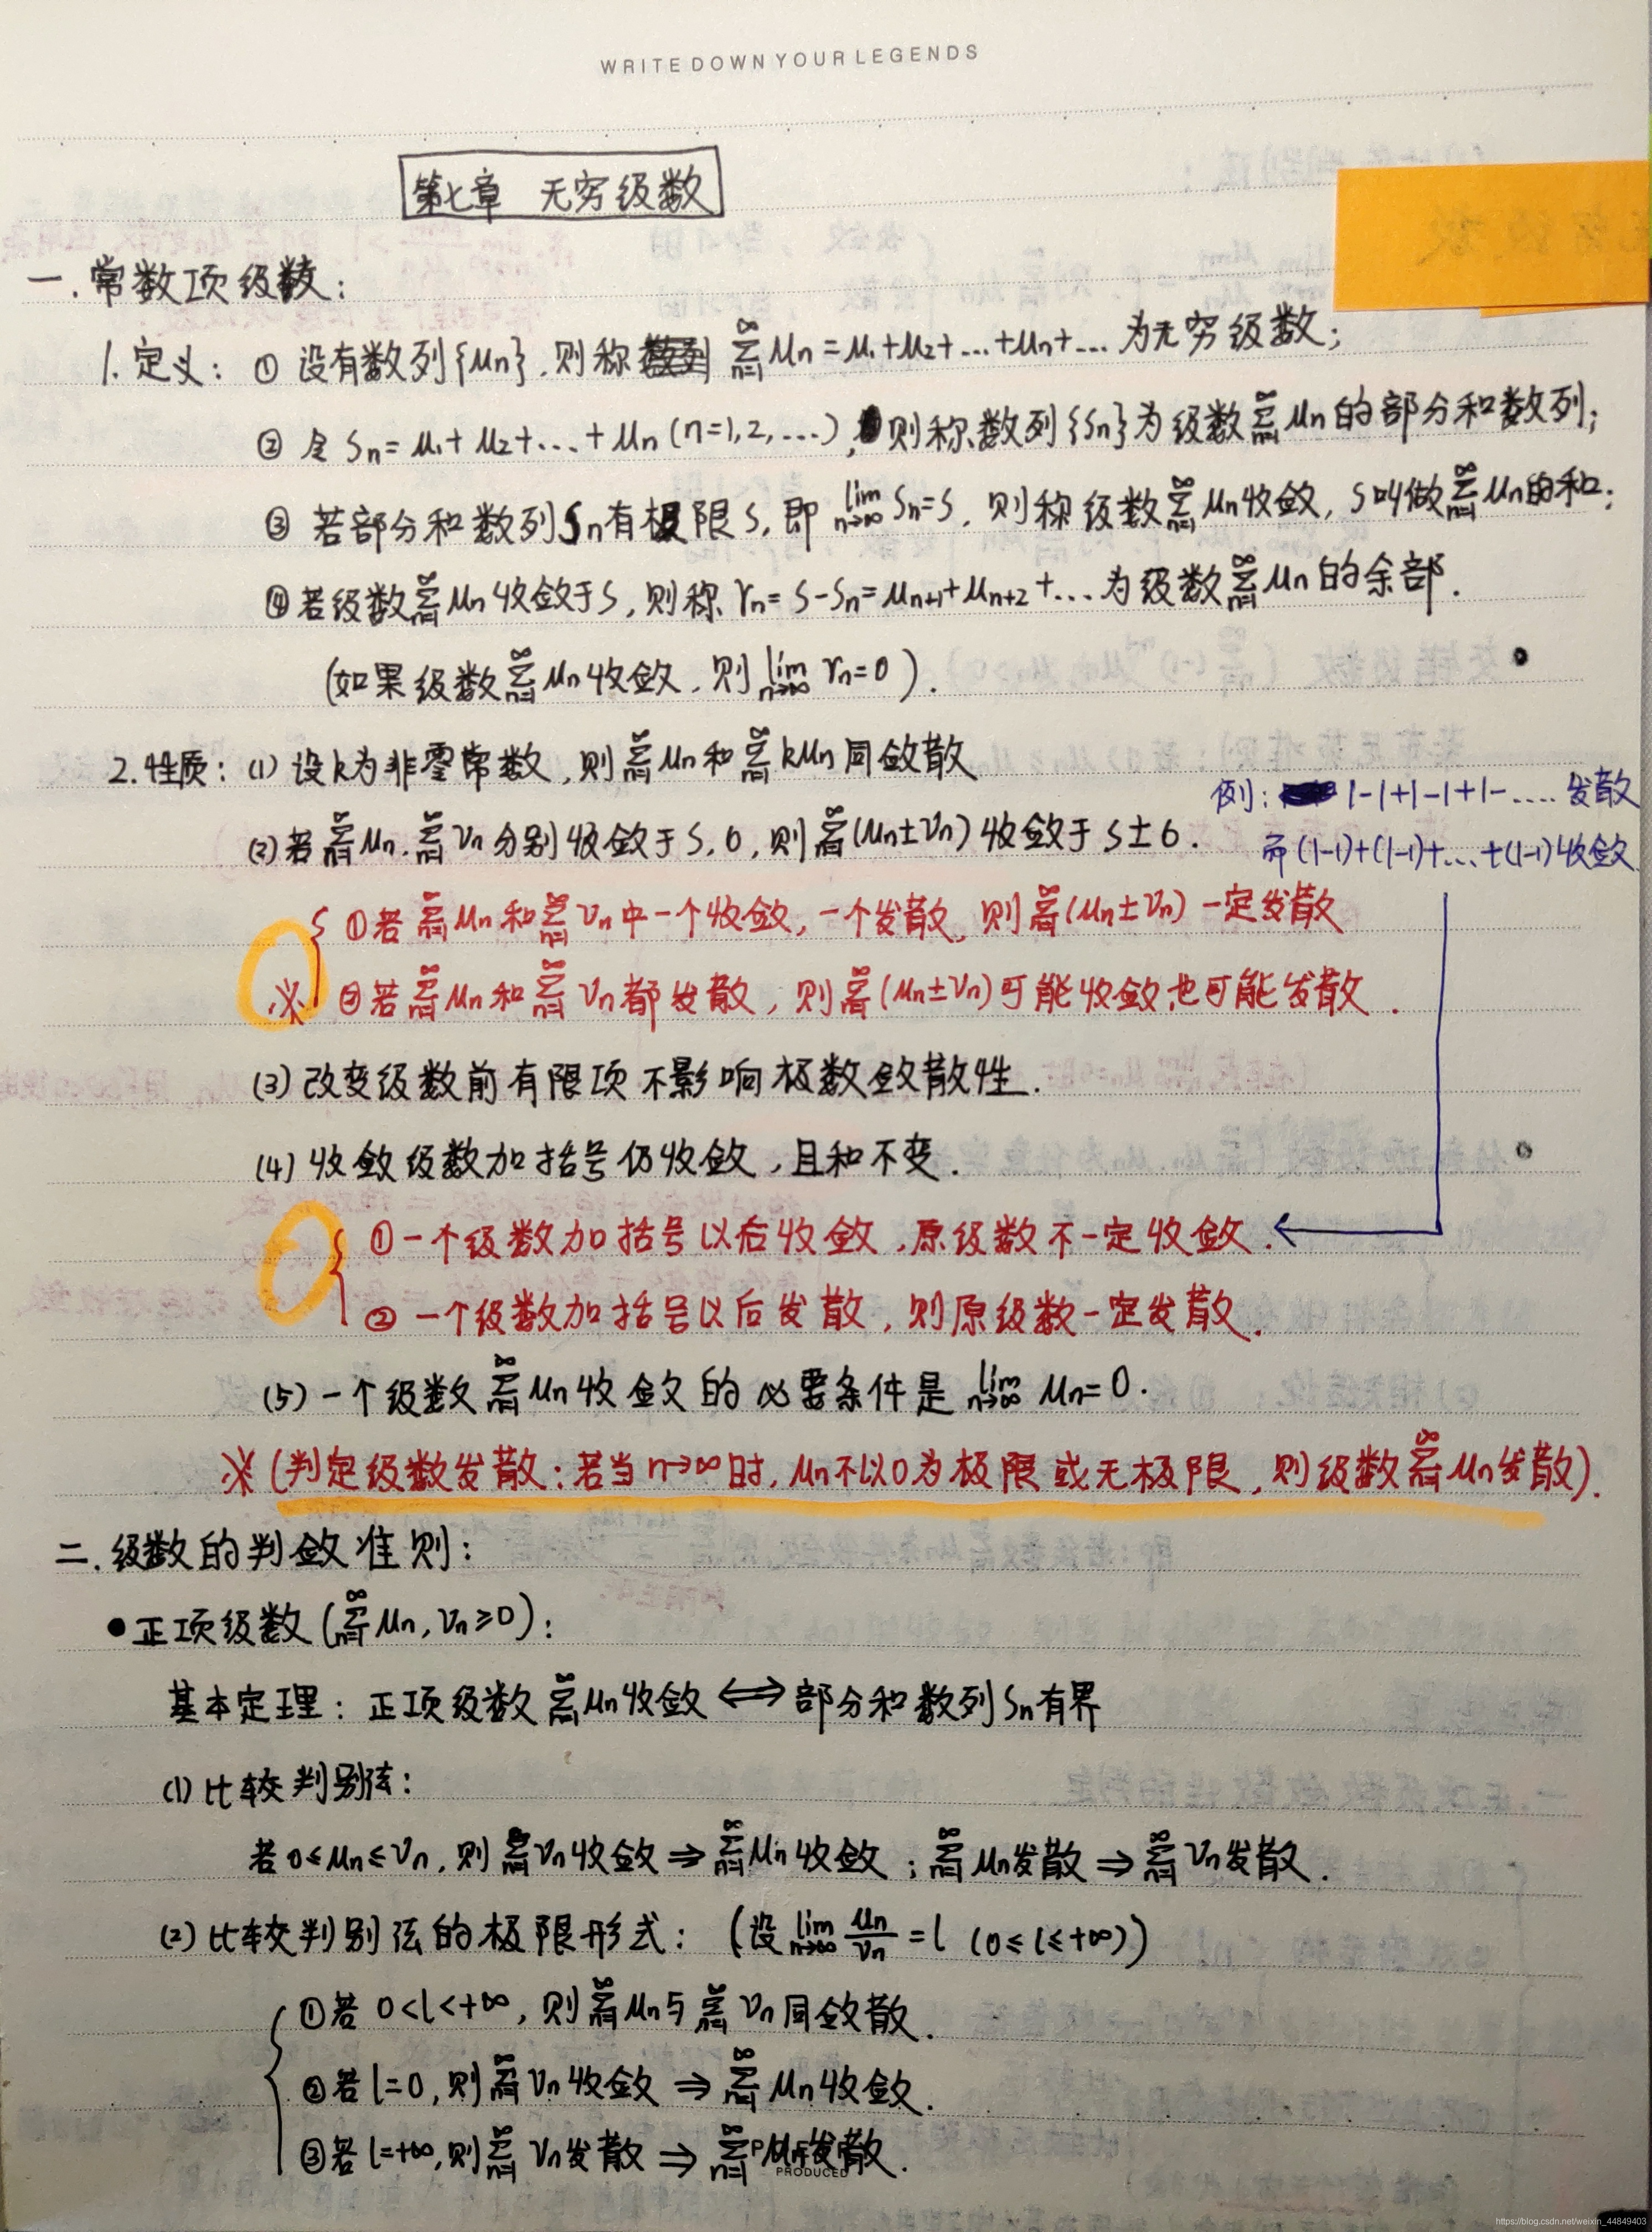 WRITE DOWN YOUR LEGENDS
第七章 无穷级数
一.常数项级数:
1.定义: ① 设有数列{μn},则称 ∞∑n=1 μn=μ1+μ2+...+μn+... 为无穷级数;
② 令 Sn=μ1+μ2+...+μn (n=1,2,...),则称数列{Sn}为级数∞∑n=1 μn的部分和数列;
③ 若部分和数列Sn有极限S,即 lim n→∞ Sn=S,则称级数∞∑n=1 μn收敛,S叫做∞∑n=1 μn的和;
④若级数∞∑n=1 μn收敛于S,则称 rn=S-Sn=μn+1+μn+2+... 为级数∞∑n=1 μn的余部.
(如果级数∞∑n=1 μn收敛,则 lim n→∞ rn=0).
2.性质: (1) 设k为非零常数,则∞∑n=1 μn和∞∑n=1 kμn同敛散
例: 1-1+1-1+1-.... 发散
(2)若∞∑n=1 μn.∞∑n=1 νn分别收敛于S,σ,则∞∑n=1(μn±νn)收敛于S±σ.
而(1-1)+(1-1)+...+(1-1)收敛
①若∞∑n=1 μn和∞∑n=1 νn中一个收敛,一个发散,则∞∑n=1(μn±νn)一定发散
※ ②若∞∑n=1 μn和∞∑n=1 νn都发散,则∞∑n=1(μn±νn)可能收敛也可能发散.
(3) 改变级数前有限项不影响极数敛散性.
(4) 收敛级数加括号仍收敛,且和不变.
①一个级数加括号以后收敛,原级数不一定收敛.
② 一个级数加括号以后发散,则原级数一定发散.
(5) 一个级数∞∑n=1 μn收敛的必要条件是 lim n→∞ μn=0.
※(判定级数发散:若当n→∞时,μn不以0为极限或无极限,则级数∞∑n=1 μn发散).
二.级数的判敛准则:
●正项级数(∞∑n=1 μn,νn≥0):
基本定理: 正项级数∞∑n=1 μn收敛⟺部分和数列Sn有界
(1)比较判别法:
若0≤μn≤νn,则∞∑n=1 νn收敛⇒∞∑n=1 μn收敛;∞∑n=1 μn发散⇒∞∑n=1 νn发散.
(2)比较判别法的极限形式: (设 lim n→∞ μn/νn=l (0≤l≤+∞))
①若 0<l<+∞,则∞∑n=1 μn与∞∑n=1 νn同敛散.
②若 l=0,则∞∑n=1 νn收敛⇒∞∑n=1 μn收敛.
③若 l=+∞,则∞∑n=1 νn发散⇒∞∑n=1 μn发散.
PRODUCED
https://blog.csdn.net/weixin_44849403